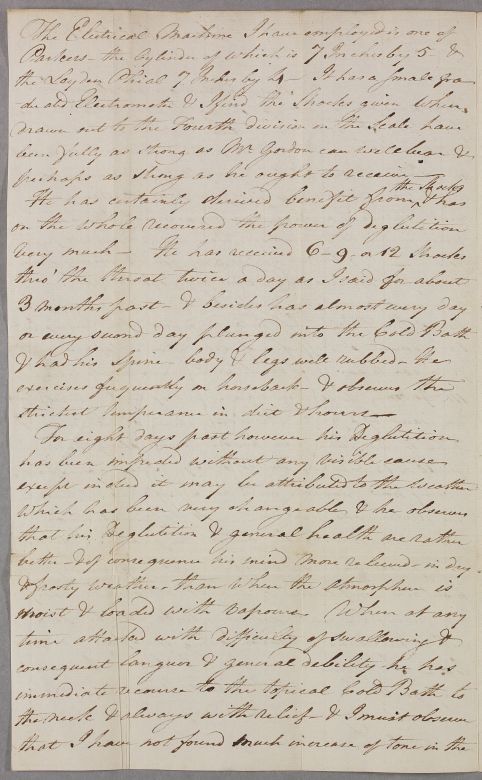 The Electrical Machine I have employed is one of
Parkers the Cylinder of which is 7 Inches by 5 &
the Leyden Phial 7 Inches by 4 - It has a small gra-
-duated Electrometer & I find the Shocks given when
drawn out to the Fourth division on the Scale have
been fully as strong as Mr Gordon can well bear &
perhaps as strong as he ought to receive -
the Shocks
He has certainly derived benefit from & has
on the whole recovered the power of deglutition
very much - He has received 6-9 or 12 Shocks
thro' the throat twice a day as I said for about
3 months past & besides has almost every day
or every second day plunged into the Cold Bath
& had his spine - body & legs well rubbed - He
exercises frequently on horseback - & observes the
strictest temperance in diet & hours -
For eight days past however his Deglutition
has been impeded without any visible cause
except indeed it may be attributed to the weather
which has been very changeable & he observes
that his Deglutition & general health are rather
better - & of consequence his mind more relieved - in dry
& frosty weather - than when the atmosphere is
moist & loaded with vapours - When at any
time attacked with difficulty of swallowing &
consequent languor & general debility he has
immediate recourse to the topical Cold Bath to
the neck & always with relief - & I must observe
that I have not found much increase of tone in the